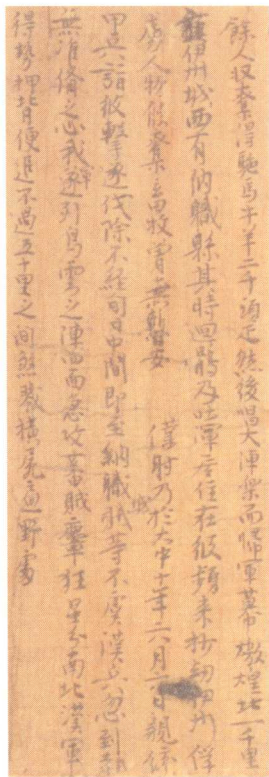 餘人收奪得駞馬牛羊二千頭疋然後唱大陣樂而歸軍幕 燉煌北一千里
鎮伊州城西有納職縣其時迴鶻及吐渾居住在彼頻來抄劫伊州俘
虜人物侵奪畜牧曾無暫安 僕射乃於大中十年六月六日親統
甲兵詣彼擊逐伐除不經旬日中間即至納職城賊等不虞漢兵忽到都
無准備之心我軍遂列烏雲之陣四面急攻蕃賊麞狂星分南北漢軍
得勢押背便追不過五十里之間煞戮橫尸遍野處